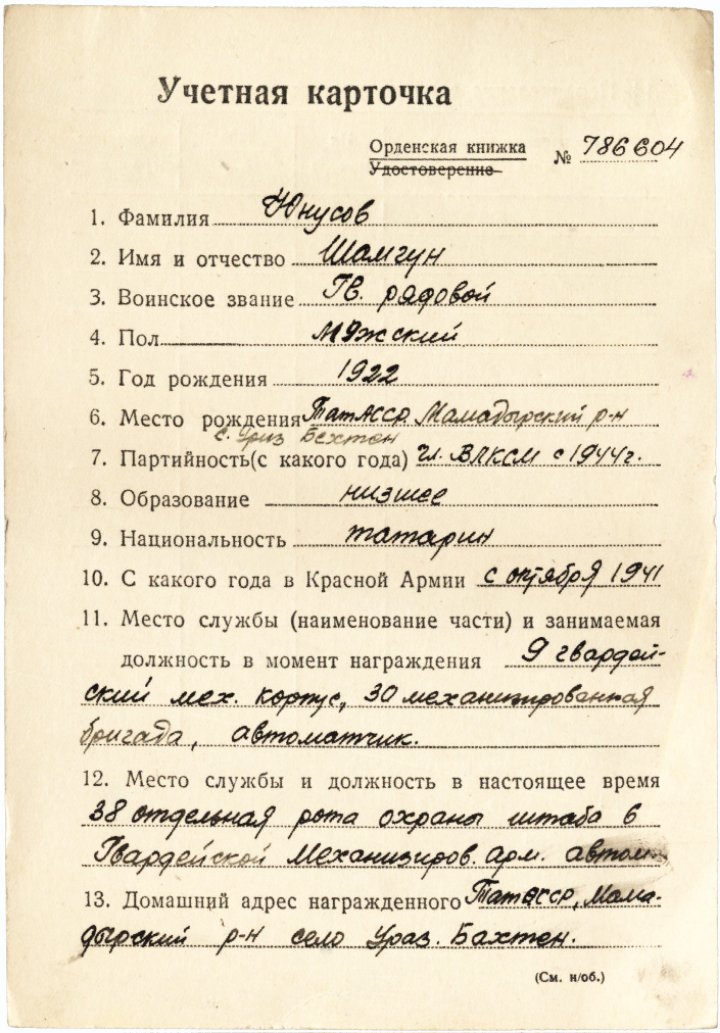 Учетная карточка
Орденская книжка № 786604
Удостоверение
1. Фамилия Юнусов
2. Имя и отчество Шамгун
3. Воинское звание Гв. рядовой
4. Пол мужский
5. Год рождения 1922
6. Место рождения ТатАССР Мамадырский р-н
с. Ураз Бахтен
7. Партийность(с какого года) чл. ВЛКСМ с 1944г.
8. Образование низшее
9. Национальность татарин
10. С какого года в Красной Армии с октября 1941
11. Место службы (наименование части) и занимаемая
должность в момент награждения 9 гвардей-
ский мех. корпус, 30 механизированная
бригада, автоматчик.
12. Место службы и должность в настоящее время
38 отдельная рота охраны штаба 6
Гвардейской Механизиров. арм.
13. Домашний адрес награжденного ТатАССР, Мама-
дырский р-н село Ураз. Бахтен.
(См. н/об.)